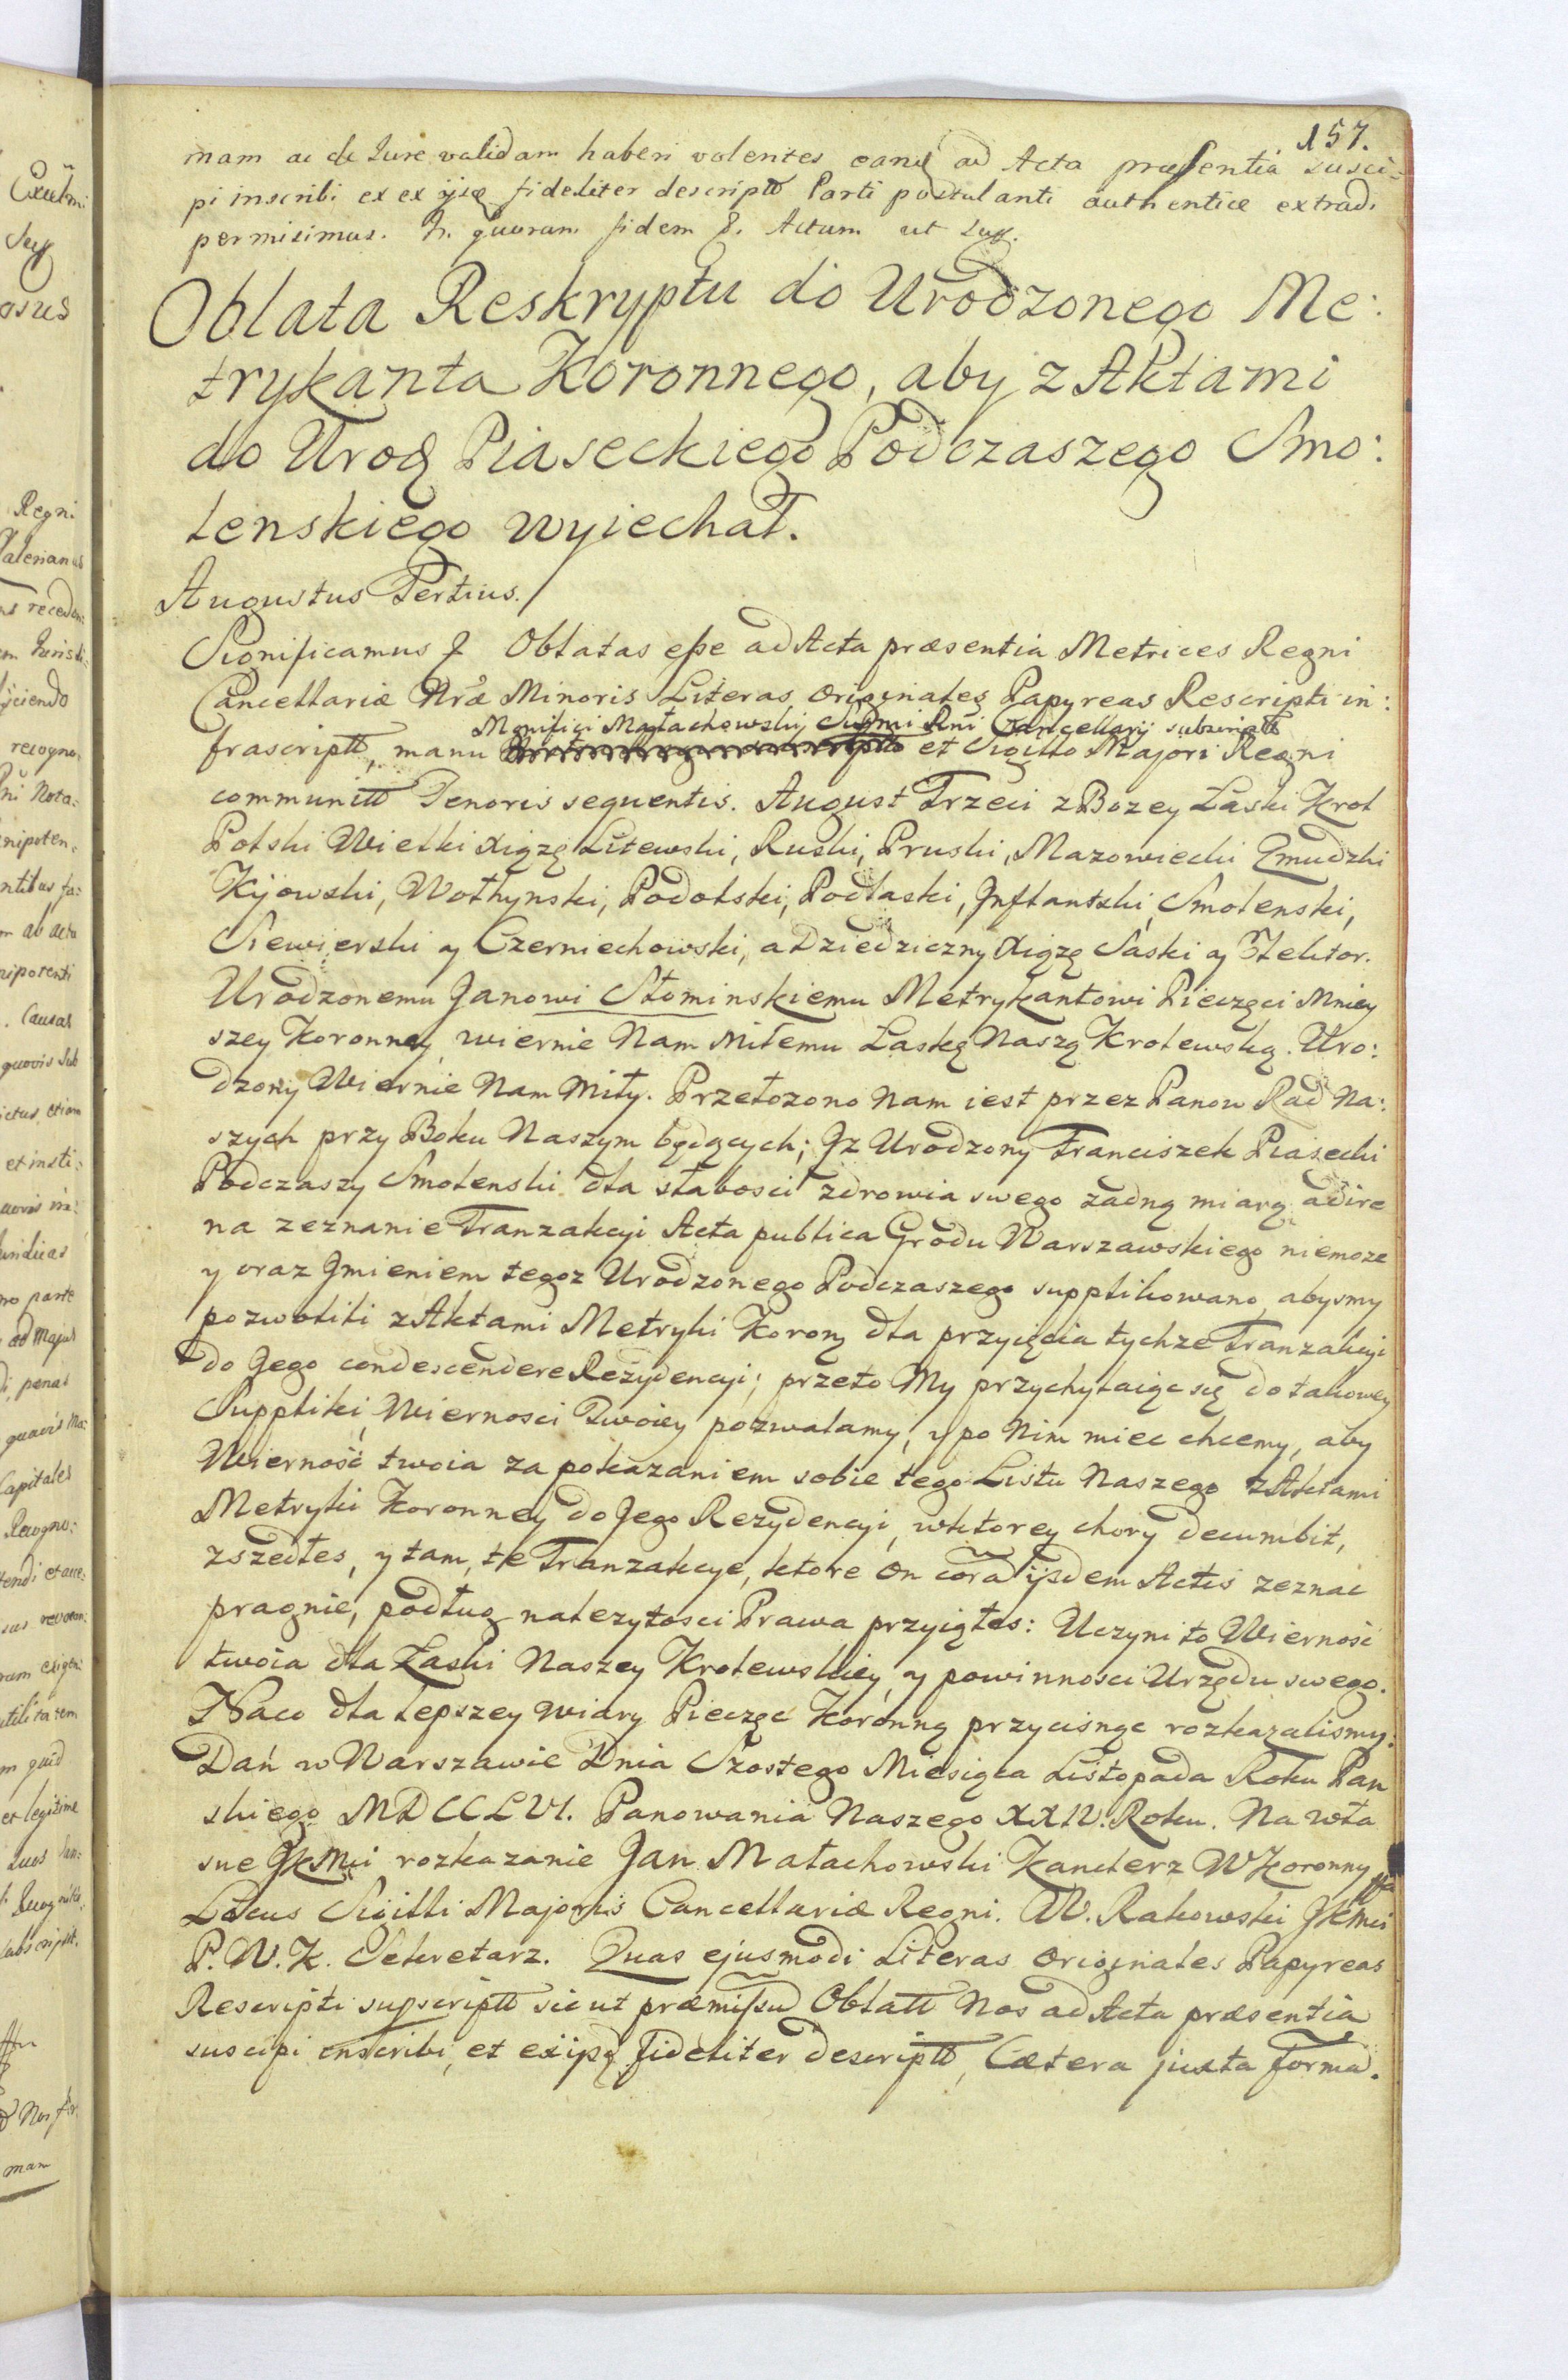 157.
mam ac de Jure validam haberi volentes eand ad Acta præsentia susci=
pi inscribi et ex ijsq fideliter descriptt Parti postulanti authentice extradi
permisimus. In quorum fidem &. Actum ut sup.
Oblata Reskryptu do Urodzonego Me:
trykanta Koronnego, aby z Aktami
do Urod Piaseckiego Podczaszego Smo:
lenskiego wyiechał.
Augustus Tertius./
Significamus & Oblatas esse ad Acta præsentia Metrices Regni
Cancellariæ Nræ Minoris Literas Originales Papyreas Rescripti in:
Mgnifici Małachowskij Supmi Rni Cancellarij subscriptt
frascriptt, manu et Sigillo Majori Regni
communitt Tenoris sequentis. August Trzeci z Bozey Łaski Krol
Polski Wielki Xiążę Litewski, Ruski, Pruski, Mazowiecki Zmudzki
Kijowski, Wołhynski, Podolski, Podlaski, Inflantski, Smolenski,
Siewierski y Czerniechowski, a Dziedziczny Xiążę Saski y Elektor.
Urodzonemu Janowi Słominskiemu Metrykantowi Pieczęci Mniey
szey Koronney, wiernie Nam Miłemu Łaskę Naszą Krolewską. Uro:
dzony Wiernie Nam Miły. Przełozono Nam iest przez Panow Rad Na:
szych przy Boku Naszym będących; Iz Urodzony Franciszek Piasecki
Podczaszy Smolenski dla słabosci zdrowia swego zadną miarą adire
na zeznanie Tranzakcyi Acta publica Grodu Warszawskiego niemoze
y oraz Imieniem tegoz Urodzonego Podczaszego supplikowano, abysmy
pozwolili z Aktami Metryki Korony dla przyięcia tychze Tranzakcyi
do Jego condescendere Rezydencyi; przeto My przychylaiąc się do takowey
Suppliki, Wiernosci Twoiey pozwalamy, y po Nim miec chcemy, aby
Wierność twoia za pokazaniem sobie tego Listu Naszego z Aktami
Metryki Koronney do Jego Rezydencyi, wktorey chory decumbit,
zszedłes, y tam, te Tranzakcye, ktore on cora ijsdem Actis zeznac
pragnie, podług nalezytosci Prawa przyiąłes: Uczyni to Wierność
twoia dla Łaski Naszey Krolewskiey, y powinnosci Urzędu swego.
Naco dla lepszey Wiary Pieczęc Koronną przycisnąc rozkazalismy.
Dań w Warszawie Dnia Szostego Miesiąca Listopada Roku Pan
skiego MDCCLVI. Panowania Naszego XXIV. Roku. Na wła
sne JKMci rozkazanie Jan Małachowski Kanclerz W Koronny
Locus Sigilli Majoris Cancellariæ Regni. W. Rakowski JKMci
P. W. K. Sekretarz. Quas ejusmodi Literas Originales Papyreas
Rescripti supscriptt sicut præmissu Oblatt Nos ad Acta præsentia
suscipi inscribi, et exijsq fideliter descriptt, Cætera juxta formã.